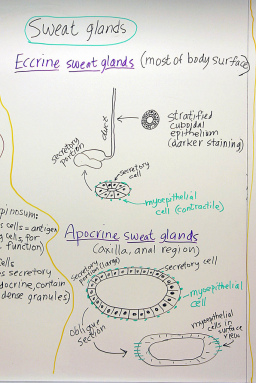 Sweat glands
Eccrine sweat glands (most of body surface)
duct
stratified
cuboidal
epithelium
(darker staining)
secretory
portion
secretory
cell
myoepithelial
cell (contractile)
pinosum:
cells = antigen
cells, for
function)
cells
secretory
docrine, contain
dense granules)
Apocrine sweat glands
(axilla, anal region)
secretory
portion (large)
secretory cell
myoepithelial
cell
oblique
section
myoepithelial
cells in
surface
view